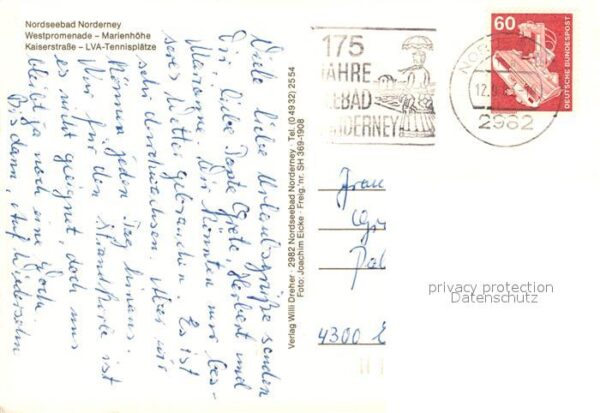 Nordseebad Norderney
Westpromenade – Marienhöhe
Kaiserstraße – LVA-Tennisplätze
Viele liebe Urlaubsgrüße senden
Dir, liebe Tante Grete, Herbert und
Marianne. Wir könnten mal bes-
seres Wetter gebrauchen. Es ist
sehr durchwachsen. Aber wir
können jeden Tag hinaus.
Nur für den Strandkorb ist
es nicht geeignet, doch uns
bleibt ja noch eine Woche.
Bis dann, Auf Wiedersehn
Verlag Willi Dreher · 2982 Nordseebad Norderney · Tel. (0 49 32) 25 54
Foto: Joachim Eicke · Freig.-nr. SH 369-1908
175
JAHRE
EEBAD
NDERNEY
NOR
12.
2982
60
DEUTSCHE BUNDESPOST
Frau
4300 E
privacy protection
Datenschutz